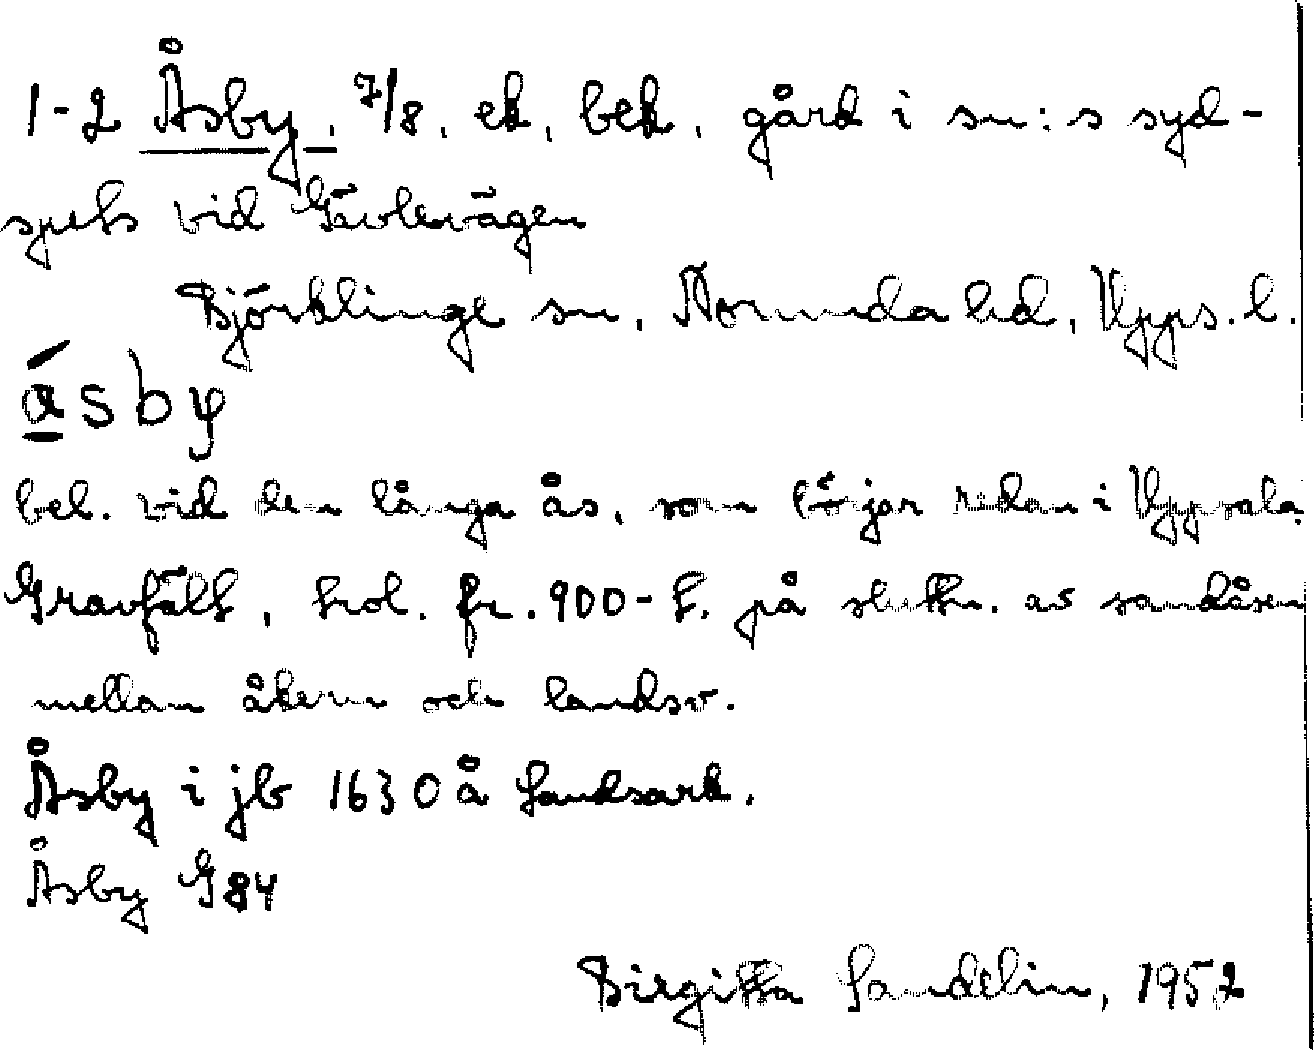 1-2 Åsby, 7/8, ek, bek, gård i sn:s syd-
spets vid Gävlevägen
Björklinge sn, Norunda hd, Upps. l.
ásby
bel. vid den långa ås, som börjar redan i Uppsala.
Gravfält, trol. fr. 900-t. på slutn. av sandåsen
mellan åkern och landsv.
Åsby i jb 1630 å Landsark.
Åsby G84
Birgitta Sandelin, 1952